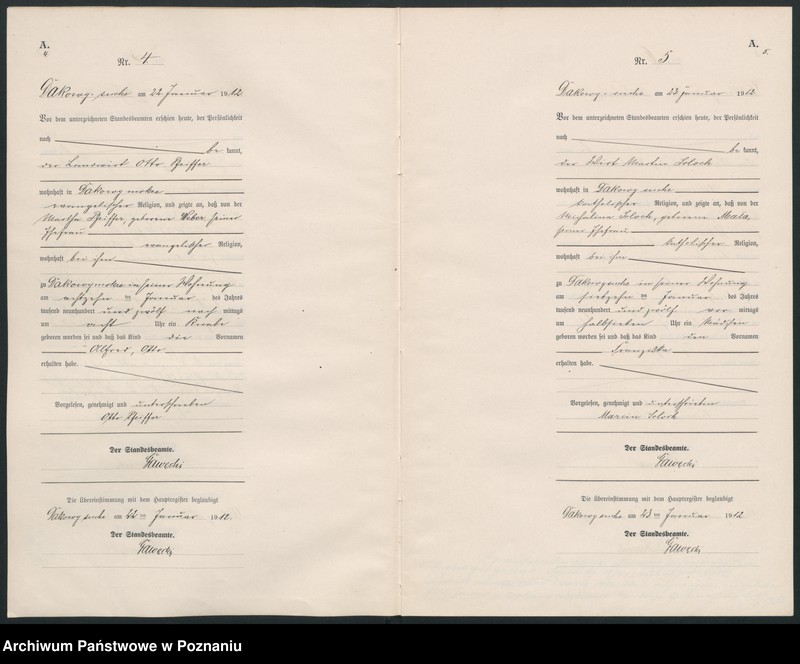 A.
4
Nr. 4
Dakowy-suche am 22 Januar 1912
Vor dem unterzeichneten Standesbeamten erschien heute, der Persönlichkeit
nach
be kannt,
der Landwirt Otto Pfeiffer
wohnhaft in Dakowy mokre
evangelischer Religion, und zeigte an, daß von der
Martha Pfeiffer, geborene Weber seiner
Ehefrau
evangelischer Religion,
wohnhaft bei ihm
zu Dakowy mokre in seiner Wohnung
am achtzehn ten Januar des Jahres
tausend neunhundert und zwölf nach mittags
um acht Uhr ein Knabe
geboren worden sei und daß das Kind die Vornamen
Alfred, Otto
erhalten habe.
Vorgelesen, genehmigt und unterschrieben
Otto Pfeiffer
Der Standesbeamte.
Gawecki
Die Übereinstimmung mit dem Hauptregister beglaubigt
Dakowy suche am 22 ten Januar 1912.
Der Standesbeamte.
Gawecki
A.
5.
Nr. 5
Dakowy-suche am 23 Januar 1912
Vor dem unterzeichneten Standesbeamten erschien heute, der Persönlichkeit
nach
be kannt,
der Wirt Martin
wohnhaft in Dakowy suche
katholischer Religion, und zeigte an, daß von der
Michalina geborene Mala,
seiner Ehefrau
katholischer Religion,
wohnhaft bei ihm
zu Dakowy suche in seiner Wohnung
am siebzehn ten Januar des Jahres
tausend neunhundert und zwölf vor mittags
um halb sieben Uhr ein Mädchen
geboren worden sei und daß das Kind den Vornamen
Franziska
erhalten habe.
Vorgelesen, genehmigt und unterschrieben
Marcin
Der Standesbeamte.
Gawecki
Die Übereinstimmung mit dem Hauptregister beglaubigt
Dakowy suche am 23 ten Januar 1912
Der Standesbeamte.
Gawecki
Archiwum Państwowe w Poznaniu